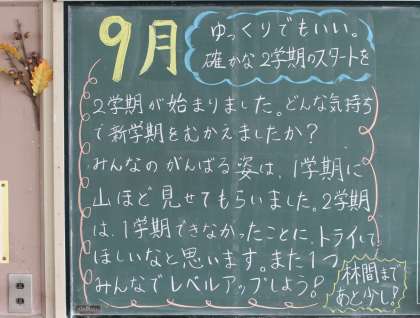 9月
ゆっくりでもいい。
確かな2学期のスタートを
2学期が始まりました。どんな気持ち
で新学期をむかえましたか?
みんなのがんばる姿は、1学期に
山ほど見せてもらいました。2学期
は、1学期できなかったことに、トライして
ほしいなと思います。また1つ
みんなでレベルアップしよう!
林間まで
あと少し!